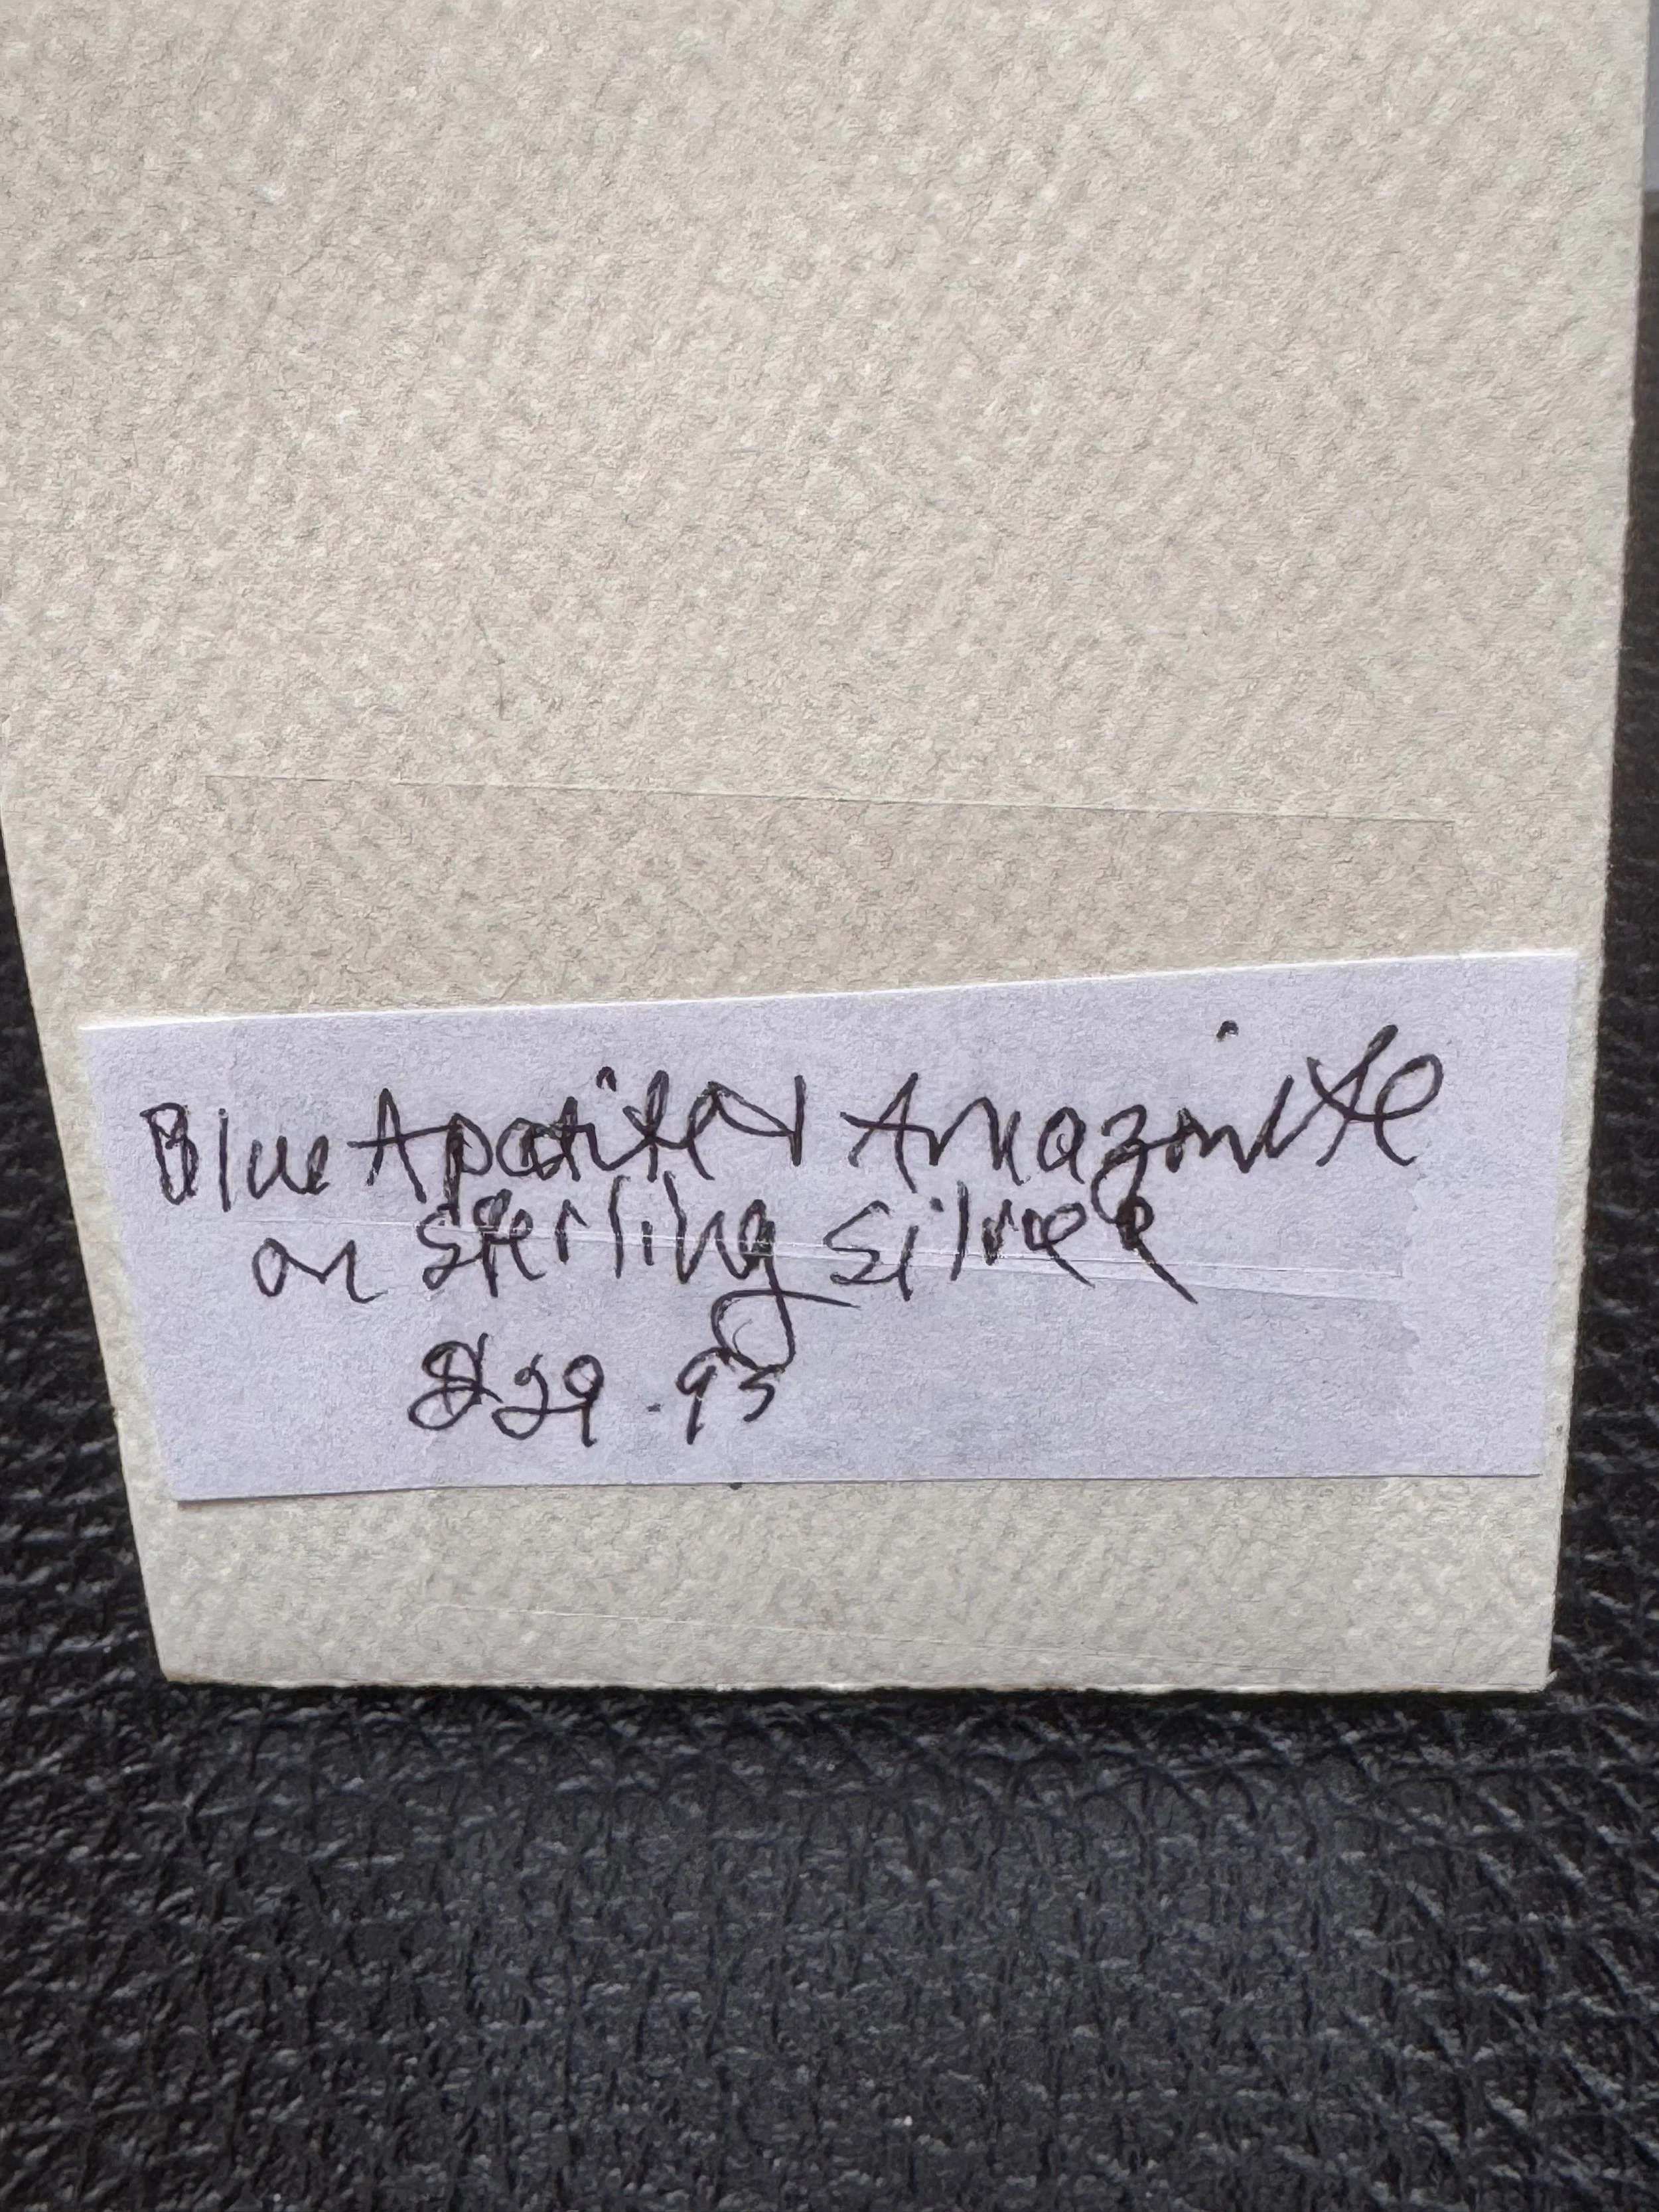 Blue Apatite & Amazonite
on Sterling Silver
$29.95